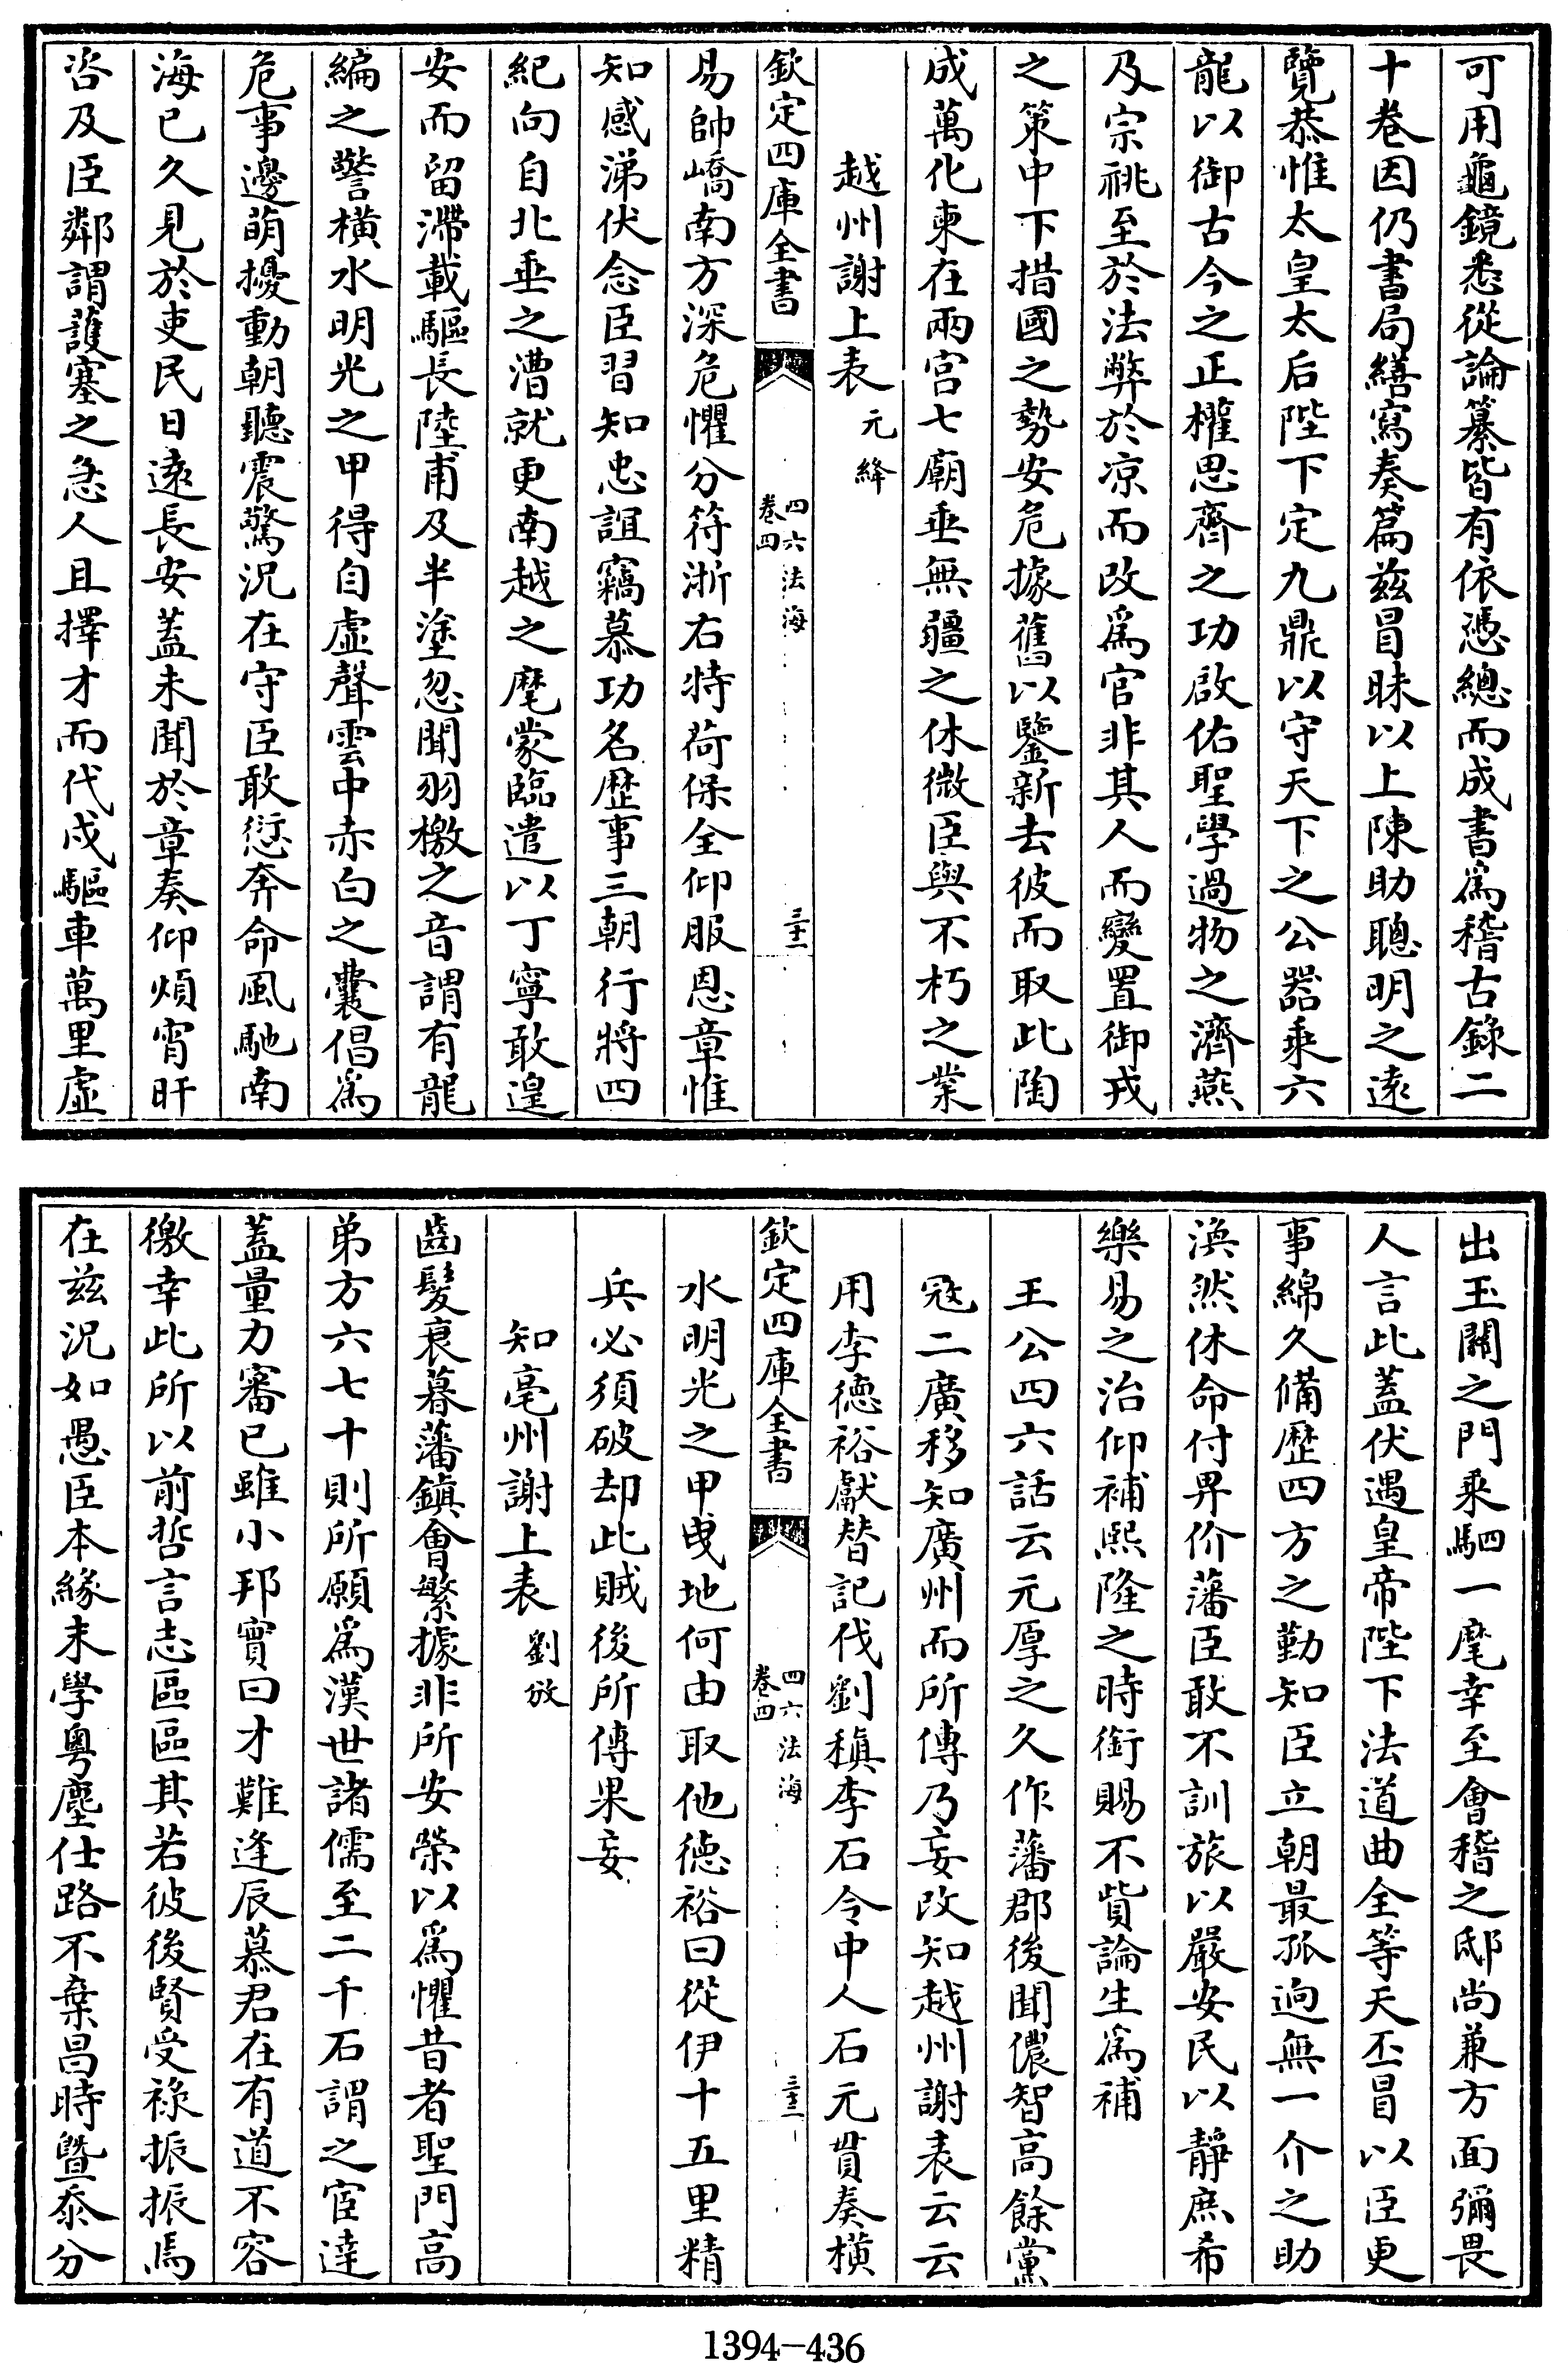 可用龜鏡悉從論纂皆有依憑總而成書爲稽古錄二
十卷因仍書局繕寫奏篇兹冒昧以上陳助聰明之遠
覽恭惟太皇太后陛下定九鼎以守天下之公器乘六
龍以御古今之正權思齊之功啟佑聖學過物之濟燕
及宗祧至於法弊於凉而改爲官非其人而變置御戎
之策中下措國之勢安危據舊以鑒新去彼而取此陶
成萬化柬在兩宮七廟垂無疆之休微臣與不朽之業
越州謝上表 元絳
欽定四庫全書 四六法海 卷四 三十二
易帥嶠南方深危懼分符浙右特荷保全仰服恩章惟
知感涕伏念臣習知忠誼竊慕功名歷事三朝行將四
紀向自北垂之漕就更南越之麾蒙臨遣以丁寧敢遑
安而留滯載驅長陸甫及半塗忽聞羽檄之音謂有龍
編之警橫水明光之甲得自虛聲雲中赤白之囊倡爲
危事邊萌擾動朝聽震驚况在守臣敢愆奔命風馳南
海已久見於吏民日遠長安蓋未聞於章奏仰煩宵旰
咨及臣鄰謂護塞之急人且擇才而代戍驅車萬里虛
出玉關之門乘駟一麾幸至會稽之邸尚兼方面彌畏
人言此蓋伏遇皇帝陛下法道曲全等天丕冒以臣更
事綿久備歷四方之勤知臣立朝最孤逈無一介之助
渙然休命付畀价藩臣敢不訓旅以嚴安民以靜庶希
樂易之治仰補熙隆之時銜賜不貲論生爲補
王公四六話云元厚之久作藩郡後聞儂智高餘黨
冦二廣移知廣州而所傳乃妄改知越州謝表云云
用李德裕獻替記代劉稹李石令中人石元貫奏橫
欽定四庫全書 四六法海 卷四 三十三
水明光之甲曳地何由取他德裕曰從伊十五里精
兵必須破却此賊後所傳果妄
知亳州謝上表 劉攽
齒髮衰暮藩鎮會繁據非所安榮以爲懼昔者聖門高
弟方六七十則所願爲漢世諸儒至二千石謂之宦達
蓋量力審已雖小邦實曰才難逢辰慕君在有道不容
徼幸此所以前哲言志區區其若彼後賢受祿振振焉
在兹况如愚臣本緣末學粤塵仕路不棄昌時曁忝分
1394-436